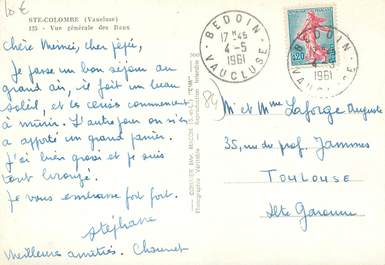 10 €
STE-COLOMBE (Vaucluse)
125 - Vue générale des Baux
Chère Mémé, cher pépé,
Je passe un bon séjour au
grand air, il fait un beau
soleil, et les cerises commencent
à mûrir. L'autre jour on s'en
a apporté un grand panier.
J'ai bien grossi et je suis
tout bronzé.
Je vous embrasse fort fort.
Stéphane
Meilleures amitiés.
BEDOIN
17H45
4-5
1961
VAUCLUSE
BEDOIN
1961
VAUCLUSE
0,20
84
M et Mme Laforge Auguste
35, rue du prof. Jammes
TOULOUSE
Hte Garonne